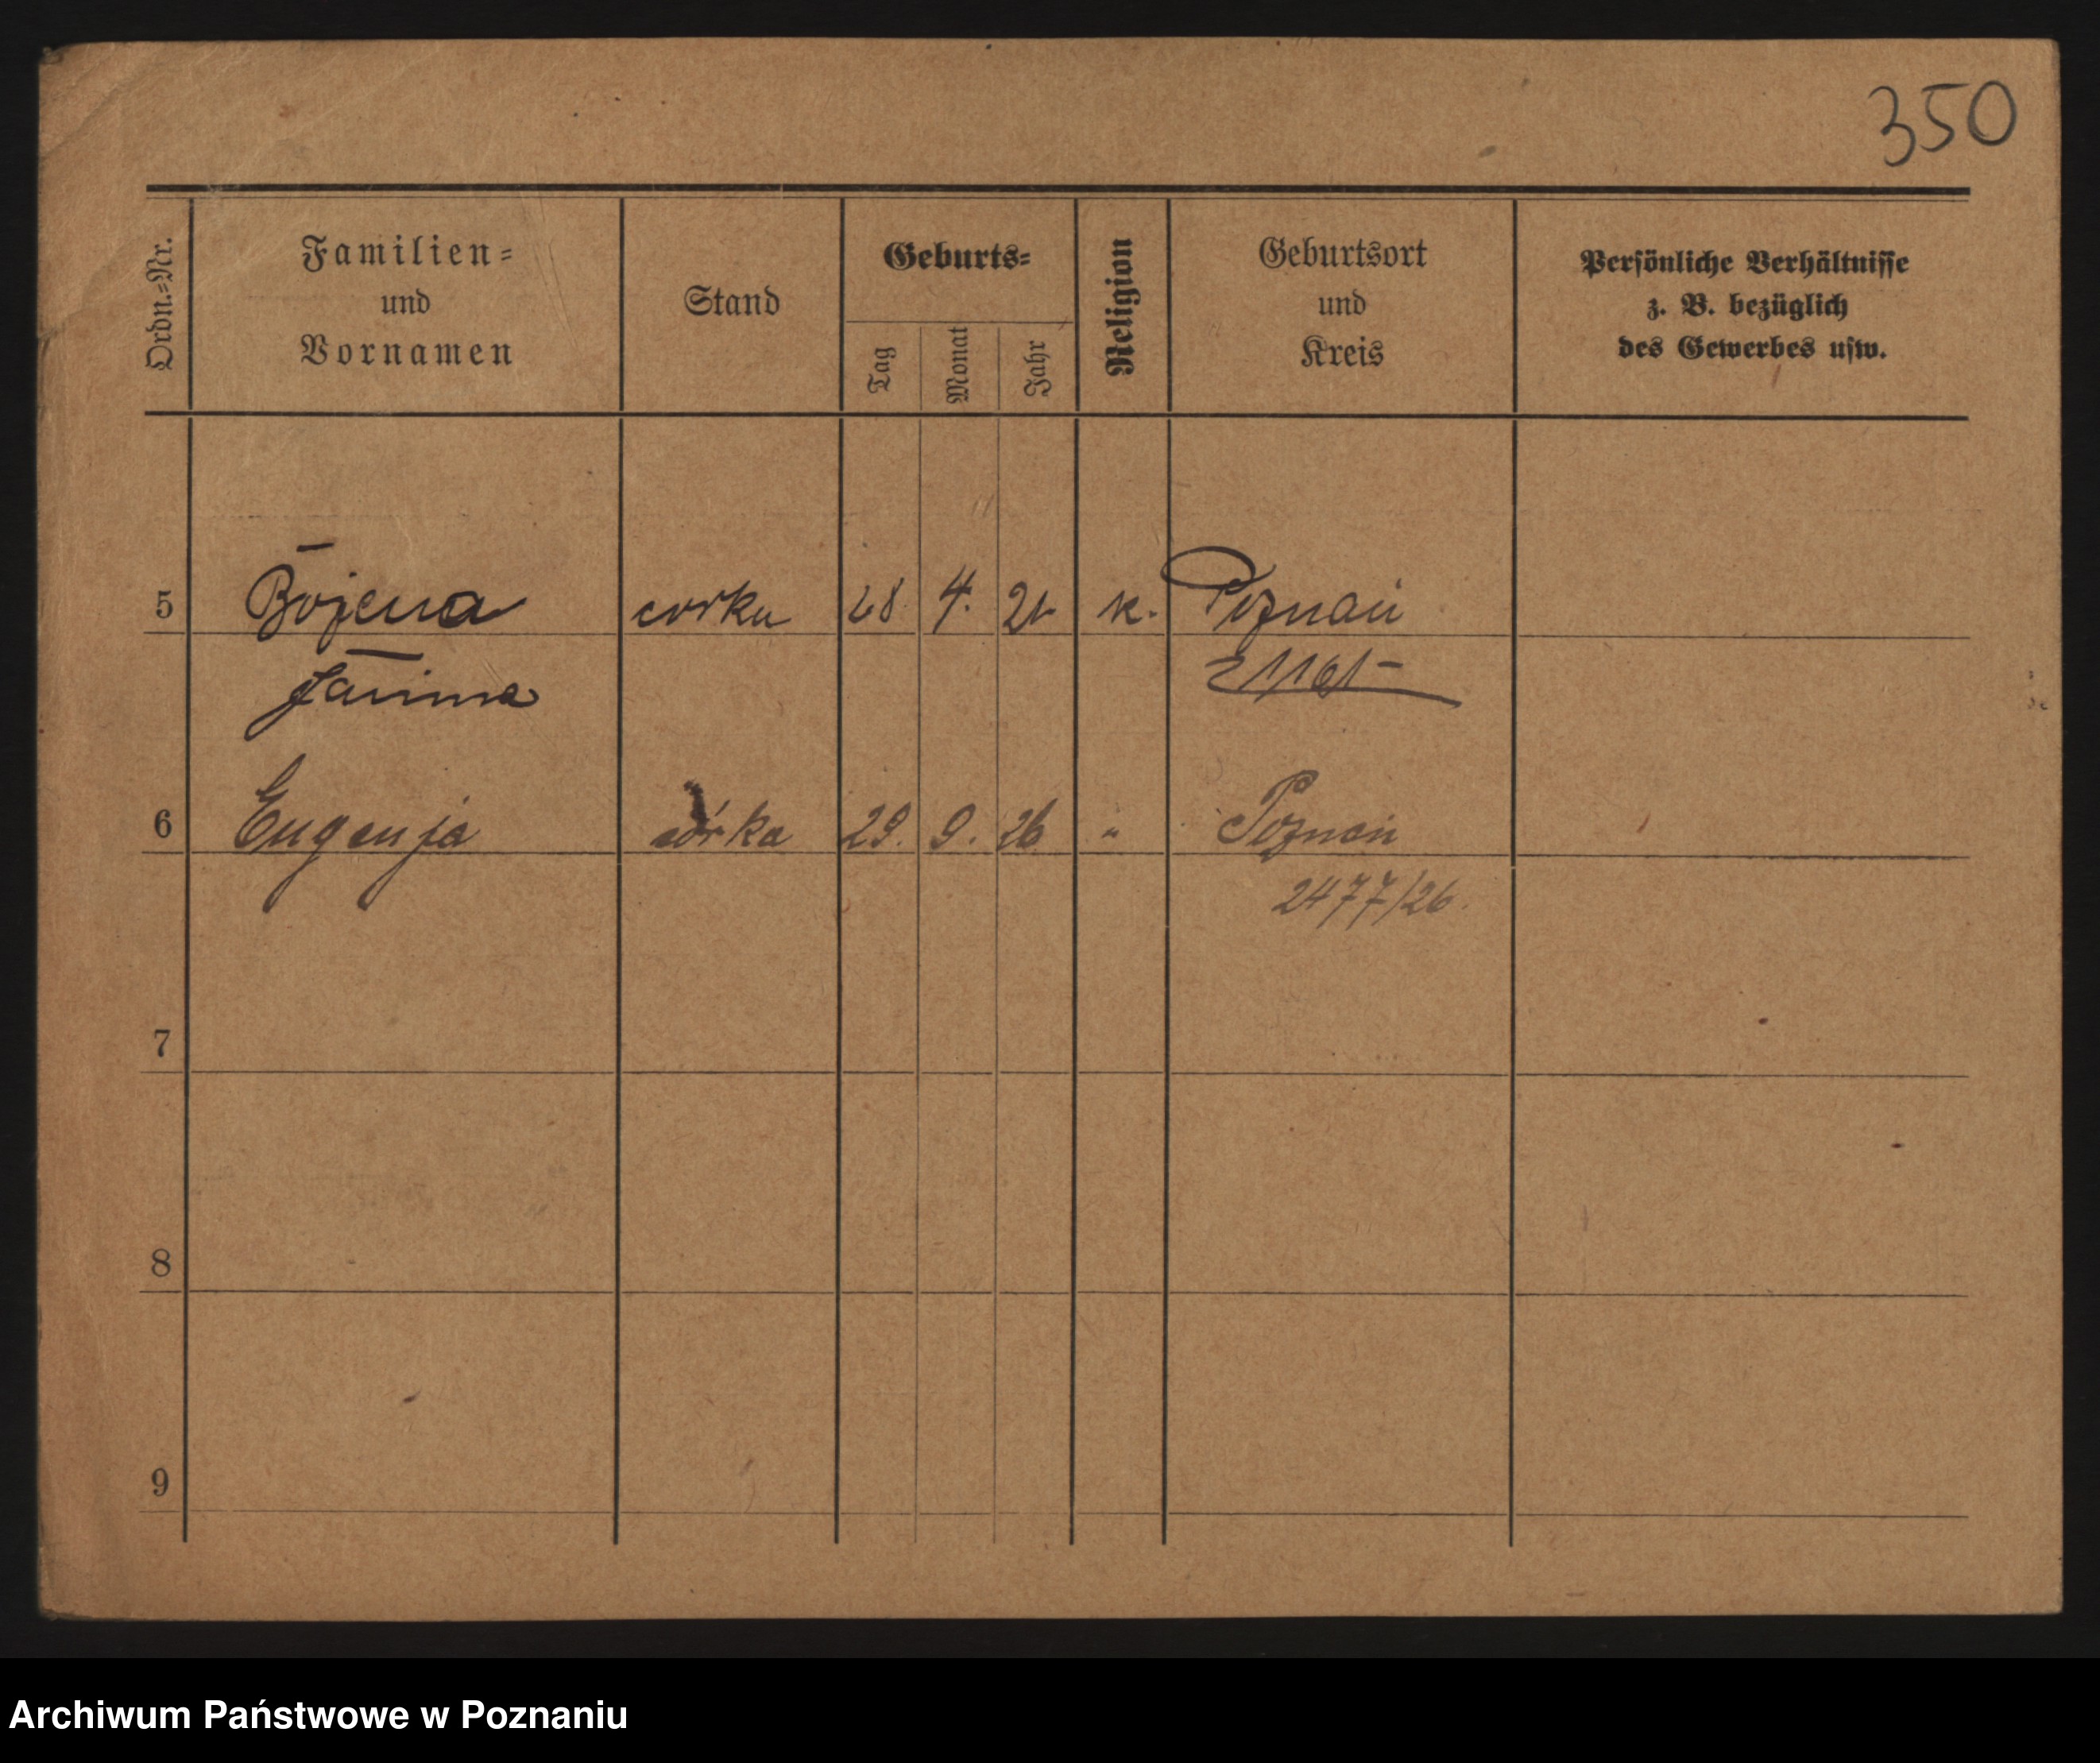 350
Ordn.=Nr.
Familien=
und
Vornamen
Stand
Geburts=
Tag
Monat
Jahr
Religion
Geburtsort
und
Kreis
Persönliche Verhältnisse
z. B. bezüglich
des Gewerbes usw.
5 Bojena corka 28. 4. 21 k. Poznań
Janina
6 Eugenja córka 29. 9. 26 " Poznań
2477/26.
7
8
9
Archiwum Państwowe w Poznaniu